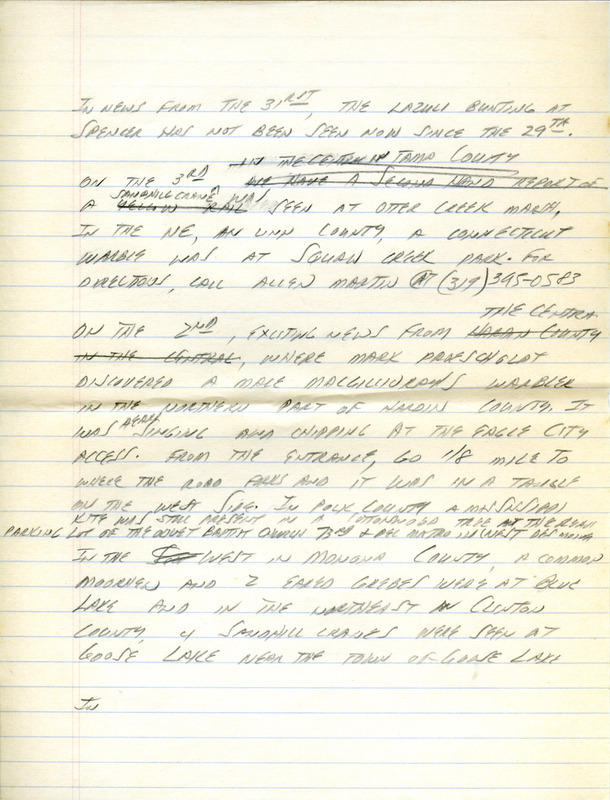 IN NEWS FROM THE 31RST, THE LAZULI BUNTING AT
SPENCER HAS NOT BEEN SEEN NOW SINCE THE 29TH.
IN THE CENTRAL IN TAMA COUNTY
ON THE 3RD WE HAVE A SECOND HAND REPORT OF
SANDHILL CRANE WAS
A YELLOW RAIL SEEN AT OTTER CREEK MARSH.
IN THE NE, IN LINN COUNTY, A CONNECTICUT
WARBLE WAS AT SQUAW CREEK PARK. FOR
DIRECTIONS, CALL ALLEN MARTIN AT (319) 395-0583
THE CENTRA
ON THE 2ND, EXCITING NEWS FROM COUNTY
IN THE CENTRAL, WHERE MARK PROESCHOLDT
DISCOVERED A MALE MACGILLIVRAY'S WARBLER
IN THE NORTHERN PART OF HARDIN COUNTY. IT
WAS HEARD SINGING AND CHIPPING AT THE EAGLE CITY
ACCESS. FROM THE ENTRANCE, GO 1/8 MILE TO
WHERE THE ROAD FORKS AND IT WAS IN A TANGLE
ON THE WEST SIDE. IN POLK COUNTY A MISSISSIPPI
KITE WAS STILL PRESENT IN A COTTONWOOD TREE AT THE REAR
PARKING LOT OF THE OLIVET BAPTIST CHURCH 73RD IN WEST DES MOINES
IN THE WEST IN MONONA COUNTY, A COMMON
MOORHEN AND 2 EARED GREBES WERE AT BLUE
LAKE AND IN THE NORTHEAST IN CLINTON
COUNTY, 4 SANDHILL CRANES WERE SEEN AT
GOOSE LAKE NEAR THE TOWN OF GOOSE LAKE
IN